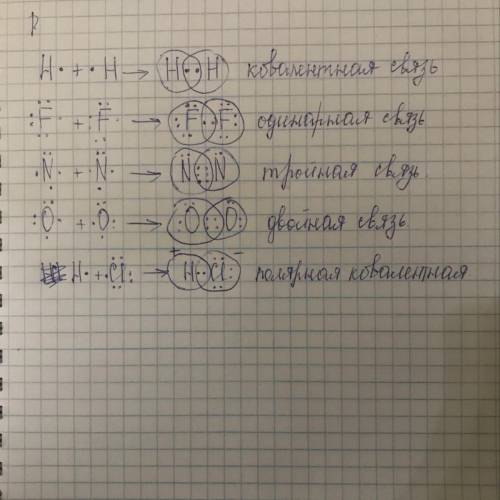 H· + ·H → H··H ковалентная связь
:F̈· + ·F̈: → :F̈··F̈: одинарная связь
·N̈· + ·N̈· → N⋮⋮N тройная связь
:Ö· + ·Ö: → :O::O: двойная связь
H· + ·C̈l: → ⁺H··C̈l:⁻ полярная ковалентная